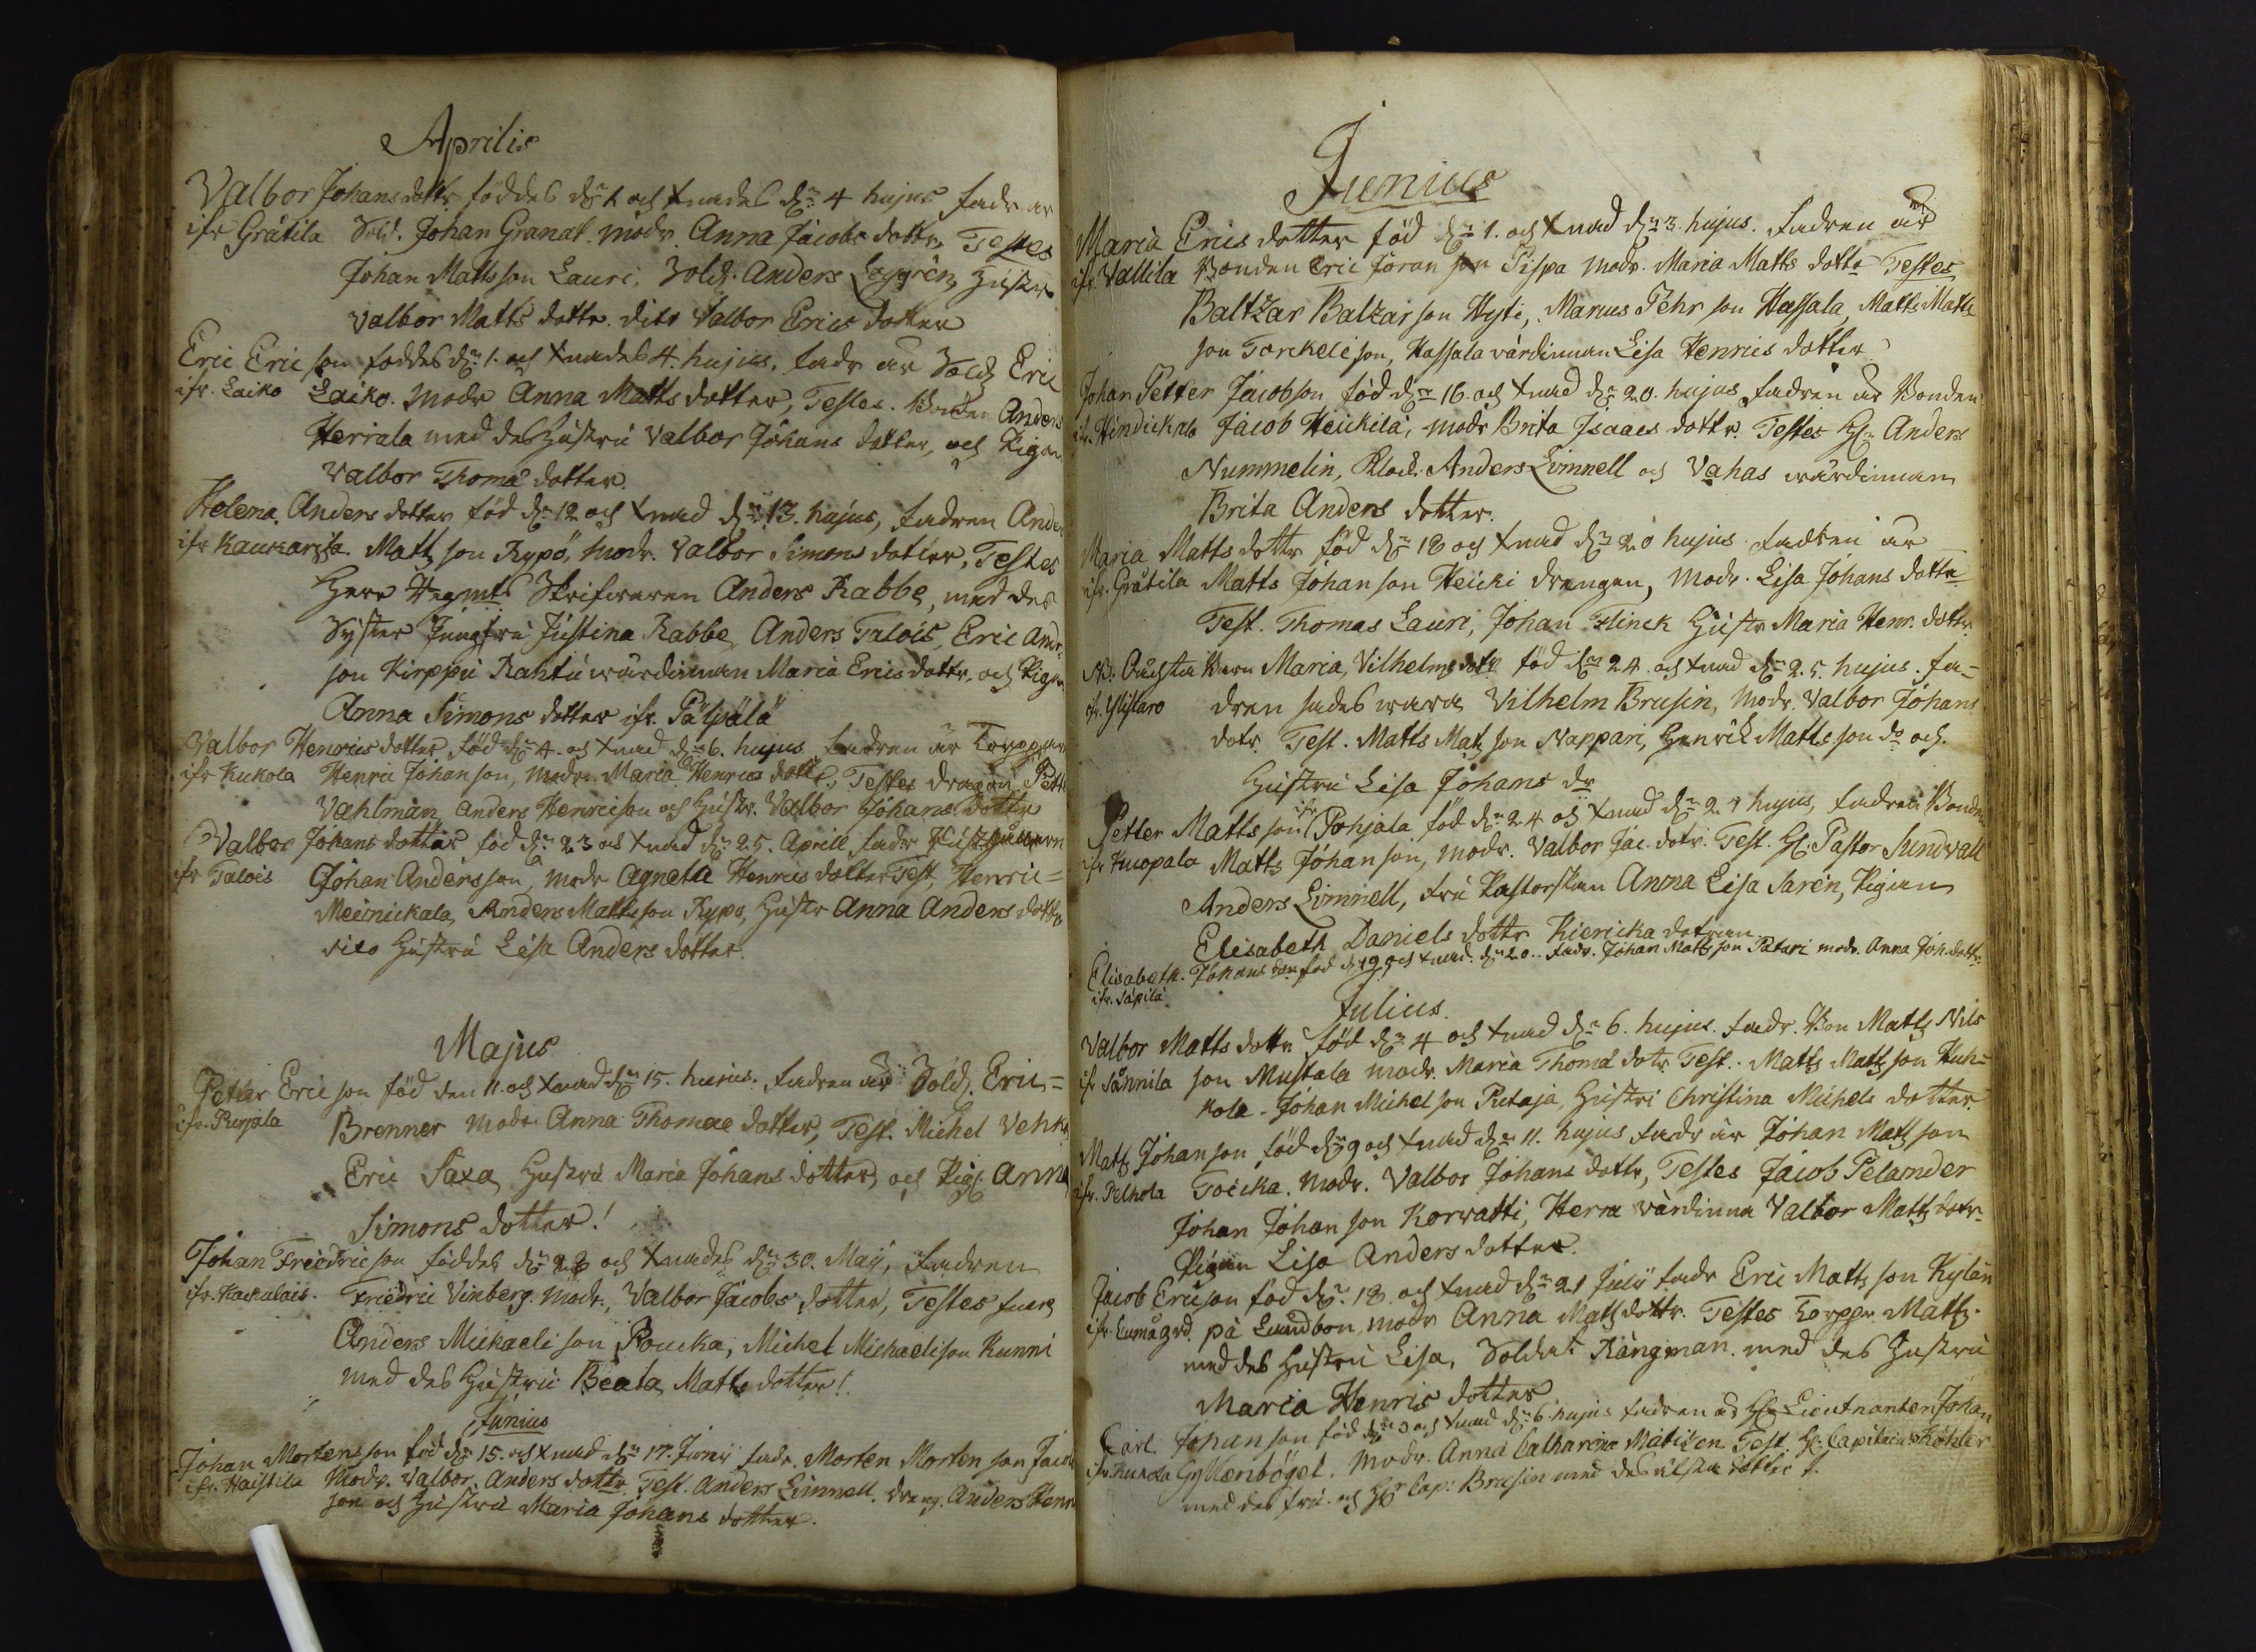 Aprilis
Valbor Johans dottr föddes dn 1 och xnades dn 4 hujus fadr är
ifr Gråtila Sold. Johan Granat. modr. Anna Jacobs dottr. Testes
Johan Matts son Lauri, Sold. Anders Hustr
Valbor Matts dottr. dito Valbor Erics dotter
Eric Eric son föddes dn 1. och xnades 4. hujus. fadr är Sold Eric
ifr. Laiko Laiko. modr Anna Matts dotter, Testes. Bonden Anders
Heriala med des Hustru Valbor Johans dotter, och Pigan
Valbor Thomæ dotter.
Helena Anders dotter född dn 12 och xnad dn 13. hujus, fadren Anders
ifr Matts son Rypö, modr. Valbor Simons dotter, Testes
Herr Regmts Skrifwaren Anders Rabbe, med des
Syster Jungfru Justina Rabbe, Anders Talois, Eric Andr.
son Kirppu Rahtu wärdinnan Maria Erics dottr. och Pigan
Anna Simons dotter ifr. Päljälä
Valbor Henrics dotter född dn 4. och xnad dn 6. hujus fadren är Torppar
ifr Kukola Henric Johan son, modr. Maria Henrics dottr, Testes dragon Pett
Vahlman, Anders Henricson och Hustr. Valbor Johans dottr
Valbor Johans dotter född dn 23 och xnad dn 25. Aprill, fadr
ifr Talois Johan Anders son, modr Agneta Henrics dotter Test, Henric=
Meinickala, Anders Mattsson Rypö, Hustr Anna Anders dottr
dito Hustru Lisa Anders dotter.
Majus
Petter Eric son född den 11. och xnad dn 15. hujus. fadren är Sold. Eric=
ifr. Purjala Brenner modr Anna Thomae dotter, Test. Michel Vehka
Eric Saxa, Hustru Maria Johans dotter, och Pig: Anna
Simons dotter!
Johan Friedric son föddes dn 28 och xnades dn 30. Maij, fadren
ifr. Friedric Vinberg. modr. Valbor Jacobs dotter, Testes
Anders Mickaeli son Roucka, Michel Michaelison Kunni
med des Hustru Beata Matts dotter!
Junius
Johan Mortensson född dn 15. och xnad dn 17. Junij fadr. Morten Morten son
ifr. Haistila Modr. Valbor. Anders dottr Test. Anders Limnell. dreng. Anders Henr
son och Hustru Maria Johans dotter.
Junius
Maria Erics dotter född dn 1. och xnad dn 3. hujus. fadren är
ifr. Vallila Bonden Eric Jöran son Pispa modr. Maria Matts dottr Testes
Baltzar Balzar son Hyti, Marcus Pehr son Hassala, Matts Matts
son Torckelison, Hassala värdinnan Lisa Henrics dotter
Johan Petter Jacobson född dn 16 och xnad dn 20. hujus fadren är Bonden
ifr. Jacob Heickilä, modr Brita Isaacs dottr. Testes Hr Anders
Nummelin, Klock. Anders Limnell och Vahas wärdinnan
Brita Anders dotter.
Maria Matts dottr född dn 18 och xnad dn 20 hujus fadren är
ifr. Gråtila Matts Johan son Heicki drengen, Modr. Lisa Johans dottr
Test. Thomas Lauri, Johan Flinck Hustr Maria Henr. dottr.
NB. Oächta barn Maria, Vilhelms dotr. född dn 24. och xnad dn 25. hujus. fa-
ifr. Ylistaro dren sades wara Vilhelm Brusin, Modr. Valbor Johans
dotr. Test. Matts Matz son Nappari, Henrik Matts son do och
Hustru Lisa Johans dr
Petter Matts son ifr Pohjala född dn 24 och xnad dn 27 hujus, fadren Bonden
ifr Matts Johan son, modr. Valbor Jac. dotr. Test. Hr. Pastor Sundvall
Anders Limnell, fru Pastorskan Anna Lisa Saren, Pigan
Elisabeth Daniels dottr
Elisabeth. Johans född dn 19 och xnad. dn 20. fadr. Johan Matts son Patari modr. Anna Joh. dottr.
ifr. Säpilä
Julius.
Valbor Matts dottr född dn 4 och xnad dn 6. hujus. fadr. Bon Matts Nils
ifr Sånnila son Mustala modr. Maria Thomæ dotr Test. Matts Matts son Kuh-
kola. Johan Michel son Putaja, Hustri Christina Michels dotter.
Matts Johan son född dn 9 och xnad dn 11. hujus fadr är Johan Matz son
ifr. Pelhola Toicka. Modr. Valbor Johans dottr, Testes Jacob Pelander
Johan Johan son Korwatti, Herra värdinna Valbor Matts dotr.
Pigan Lisa Anders dotter.
Jacob Ericson född dn. 18. och xnad dn 21 Julij fadr Eric Matts son Kylän
ifr. på Landbon modr Anna Matts dottr. Testes Torppr Matts.
med des Hustru Lisa, Soldat Kångman. med des Hustru
Maria Henrics dotter
Carl Johan son född dn 3 och xnad dn 6. hujus fadren är Hr Lieutnanten Johan
ifr. Gyllenbögel. Modr. Anna Catharina Test. Hr. Capitain Köhler
med des fru. och Hr Cap: Brusin med des älsta dotter.